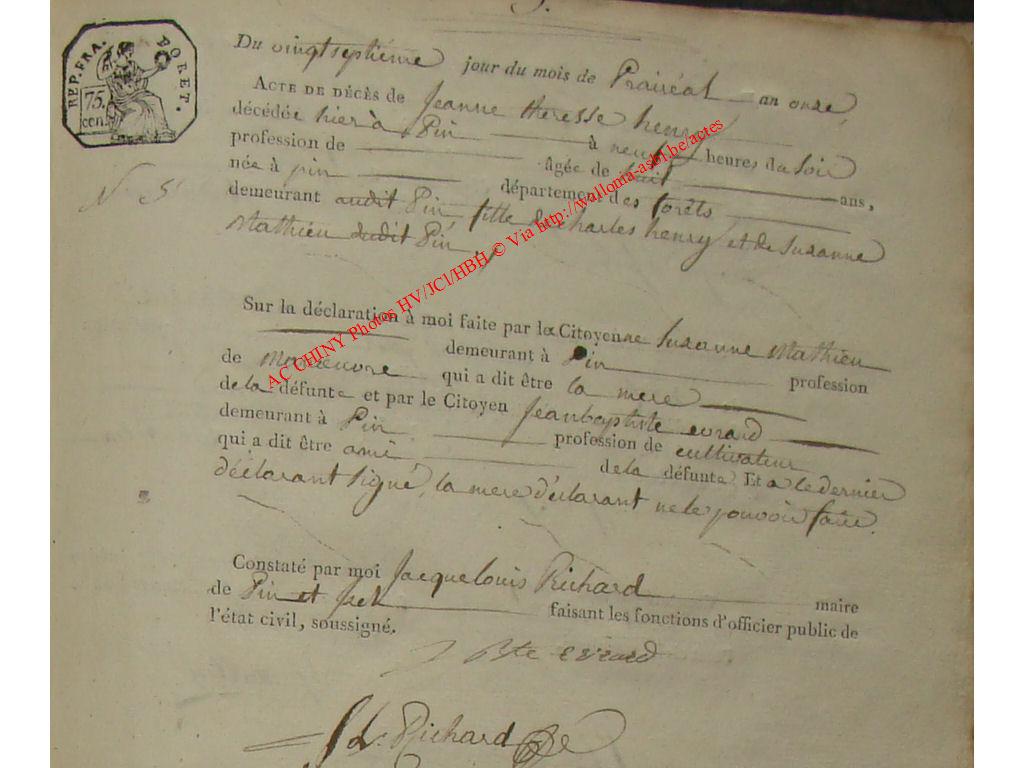 REP. FRA. FORET.
75. cen.
Du vingtseptième jour du mois de Prairéal an onze,
ACTE DE DÉCÈS de Jeanne theresse henry
décédée hier à Pin à neuf heures du Soir
profession de âgée de huit ans,
née à pin département des forêts
demeurant audit Pin fille de Charles henry et de Suzanne
Mathieu dudit Pin
Sur la déclaration à moi faite par la Citoyenne Suzanne Mathieu
demeurant à Pin profession
de Manœuvre qui a dit être la mere
de la défunte et par le Citoyen Jeanbaptiste evrard
demeurant à Pin profession de cultivateur
qui a dit être ami de la défunte Et a le dernier
déclarant Signé, la mere déclarant ne le pouvoir faire.
Constaté par moi Jacquelouis Richard maire
de Pin et faisant les fonctions d'officier public de
l'état civil, soussigné.
J Bte evrard
Richard
AC CHINY Photos HV/JCl/HBH © Via http://wallonia-asbl.be/actes